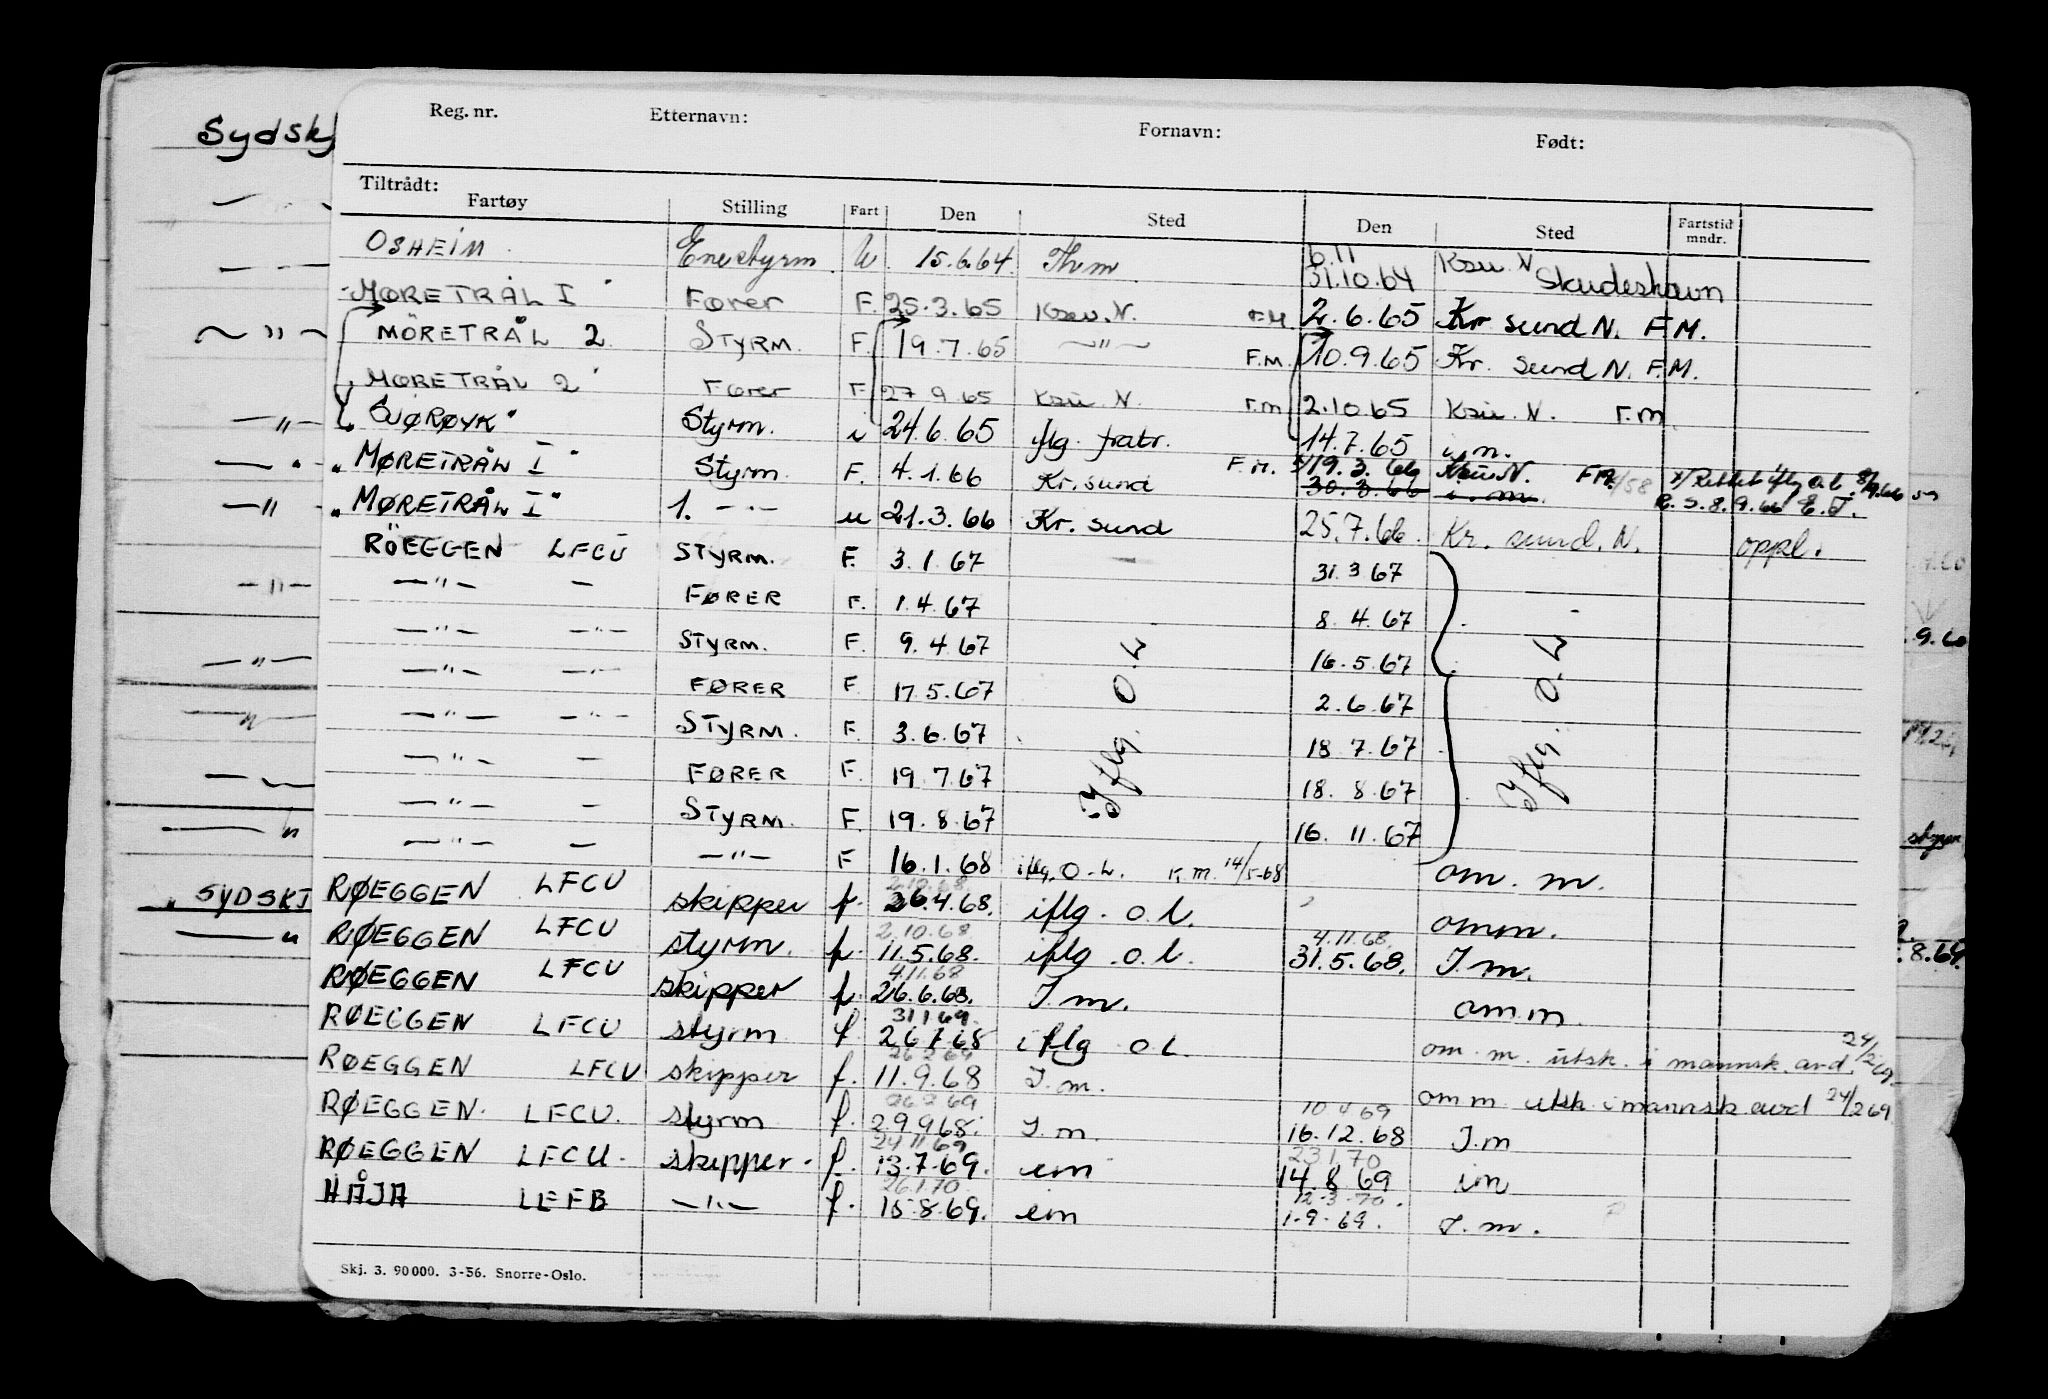 Reg. nr. Etternavn: Fornavn: Født:
Tiltrådt:
Fartøy Stilling Fart Den Sted Den Sted Fartstid mndr.
OSHEIM Enestyrm. U. 15.6.64. Thm 6.11 31.10.64 Ksu. N Skudeshavn
"MØRETRÅL I" Fører F. 25.3.65 Ksu. N. F.M. 2.6.65 Kr sund N. F.M.
MÖRETRÅL 2 STYRM. F. 19.7.65 —"— F.M. 10.9.65 Kr. sund N. F.M.
MØRETRÅL 2" Fører F. 27.9.65 Ksu. N. F.M 2.10.65 Ksu. N. F.M
Styrm. i 24.6.65 iflg. fratr. 14.7.65 i.m.
"MØRETRÅL I" Styrm. F. 4.1.66 Kr. sund F.M. 19.3.66 Ksu. N. FM.
30.3.66 i.m. R.S. 8.9.66 E.T.
"MØRETRÅL I" 1. —"— u 21.3.66 Kr. sund 25.7.66. Kr. sund. N. oppl.
RÖEGGEN LFCU STYRM. F. 3.1.67 31.3.67
—"— — FØRER F. 1.4.67 8.4.67
—"— —"— STYRM. F. 9.4.67 16.5.67
—"— —"— FØRER F 17.5.67 2.6.67
—"— —"— STYRM. F. 3.6.67 18.7.67
—"— — FØRER F. 19.7.67 18.8.67
—"— — STYRM. F. 19.8.67 16.11.67
Iflg. O.L Iflg. O.L
—"— — —"— F 16.1.68 iflg. O.L. K.M. 14/5-68 om. m.
RØEGGEN LFCU skipper f. 2.10.68 26.4.68. iflg. o.l. omm.
RØEGGEN LFCU styrm. f. 2.10.68 11.5.68. iflg. o.l. 4.11.68. 31.5.68. I.m.
RØEGGEN LFCU skipper f. 4.11.68 26.6.68. I.m. omm.
RØEGGEN LFCU styrm f. 31.1.69. 26.7.68 iflg o.l. om. m. utsk. i mannsk. avd. 24/2 69.
RØEGGEN LFCU skipper f. 26.2.69 11.9.68 I.m. omm utsk. i mannsk avd 24/2 69
RØEGGEN. LFCU. styrm f. 29.9.68. I.m. 10.4.69 16.12.68 I.m
RØEGGEN LFCU. skipper. f. 24.11.69 13.7.69. im 23.1.70 14.8.69 im
HÅJA LEFB —"— f. 26.1.70 15.8.69. im 12.3.70. 1.9.69. I.m.
Skj. 3. 90 000. 3-56. Snorre-Oslo.
Sydskj
—"—
—"—
—"—
—"—
—"—
—"—
—"—
SYDSKJ
—"—
9.60
styrm
8.69.